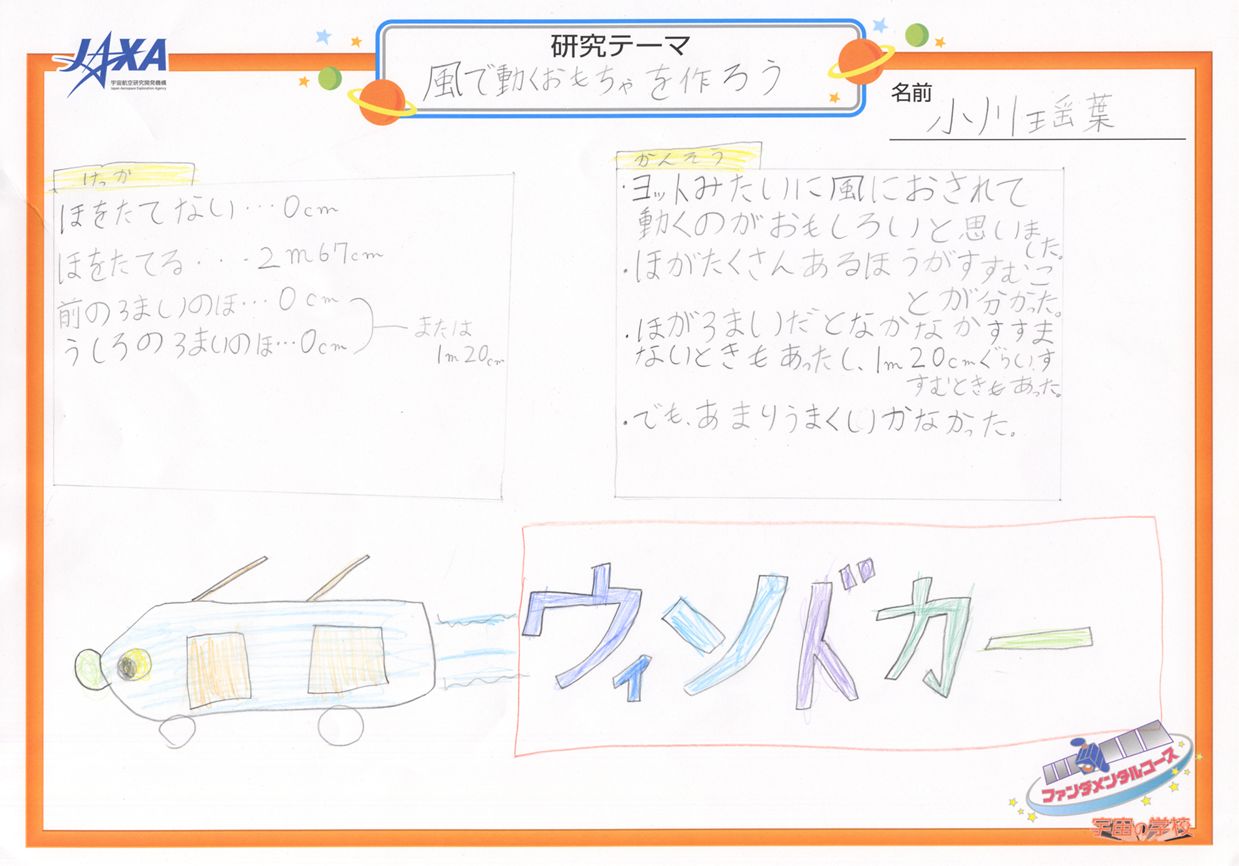 JAXA
宇宙航空研究開発機構
Japan Aerospace Exploration Agency
研究テーマ
風で動くおもちゃを作ろう
名前
小川瑶葉
けっか
ほをたてない…0cm
ほをたてる・・・2m67cm
前のろまいのほ…0cm
うしろのろまいのほ…0cm
または
1m20cm
かんそう
・ヨットみたいに風におされて
動くのがおもしろいと思いま
した。
・ほがたくさんあるほうがすすむこ
とが分かった。
・ほがろまいだとなかなかすすま
ないときもあったし、1m20cmぐらいす
すむときもあった。
・でも、あまりうまくいかなかった。
ウィンドカー
ファンダメンタルコース
宇宙の学校